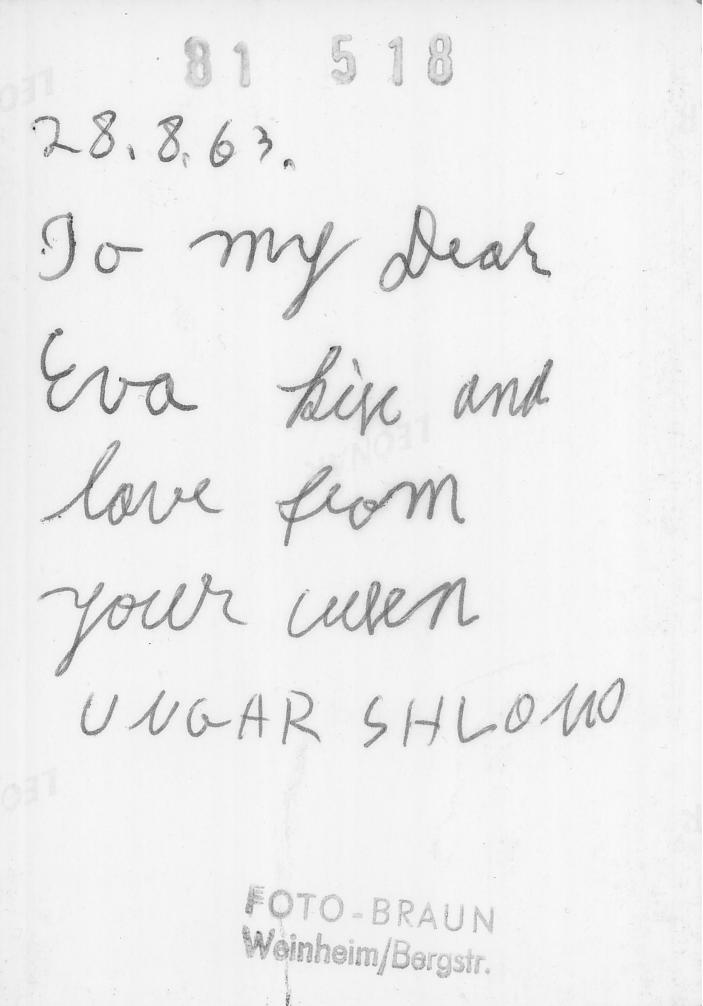 81 518
28.8.63.
To my Dear
Eva kise and
love from
your
UNGAR SHLOMO
FOTO-BRAUN
Weinheim/Bergstr.